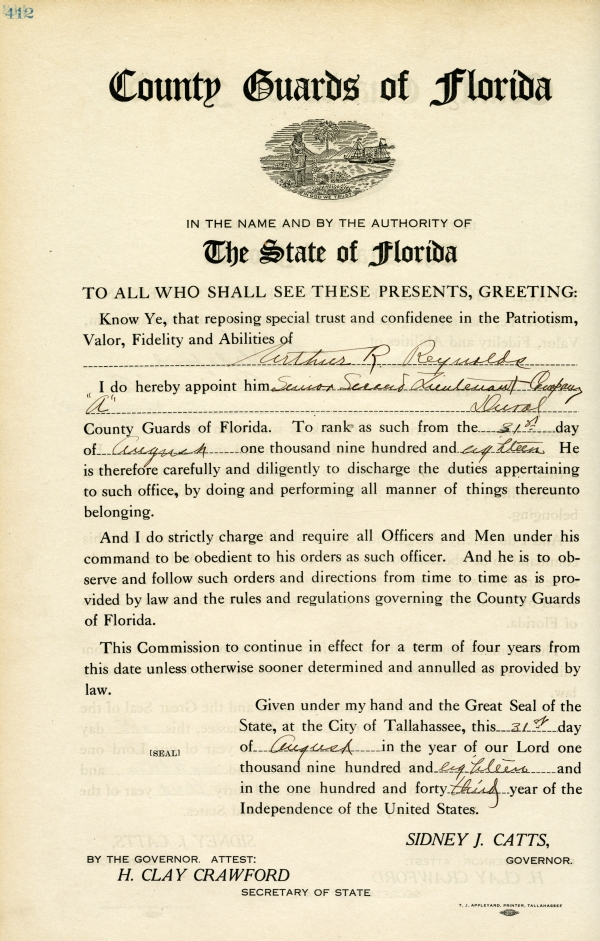 412
County Guards of Florida
IN GOD WE TRUST
IN THE NAME AND BY THE AUTHORITY OF
The State of Florida
TO ALL WHO SHALL SEE THESE PRESENTS, GREETING:
Know Ye, that reposing special trust and confidence in the Patriotism,
Valor, Fidelity and Abilities of
Arthur R Reynolds
I do hereby appoint him Senior Second Lieutenant Company
"A" Duval
County Guards of Florida. To rank as such from the 31st day
of August one thousand nine hundred and eighteen He
is therefore carefully and diligently to discharge the duties appertaining
to such office, by doing and performing all manner of things thereunto
belonging.
And I do strictly charge and require all Officers and Men under his
command to be obedient to his orders as such officer. And he is to ob-
serve and follow such orders and directions from time to time as is pro-
vided by law and the rules and regulations governing the County Guards
of Florida.
This Commission to continue in effect for a term of four years from
this date unless otherwise sooner determined and annulled as provided by
law.
Given under my hand and the Great Seal of the
State, at the City of Tallahassee, this 31st day
of August in the year of our Lord one
[SEAL]
thousand nine hundred and eighteen and
in the one hundred and forty third year of the
Independence of the United States.
SIDNEY J. CATTS,
GOVERNOR.
BY THE GOVERNOR. ATTEST:
H. CLAY CRAWFORD
SECRETARY OF STATE
T. J. APPLEYARD, PRINTER, TALLAHASSEE